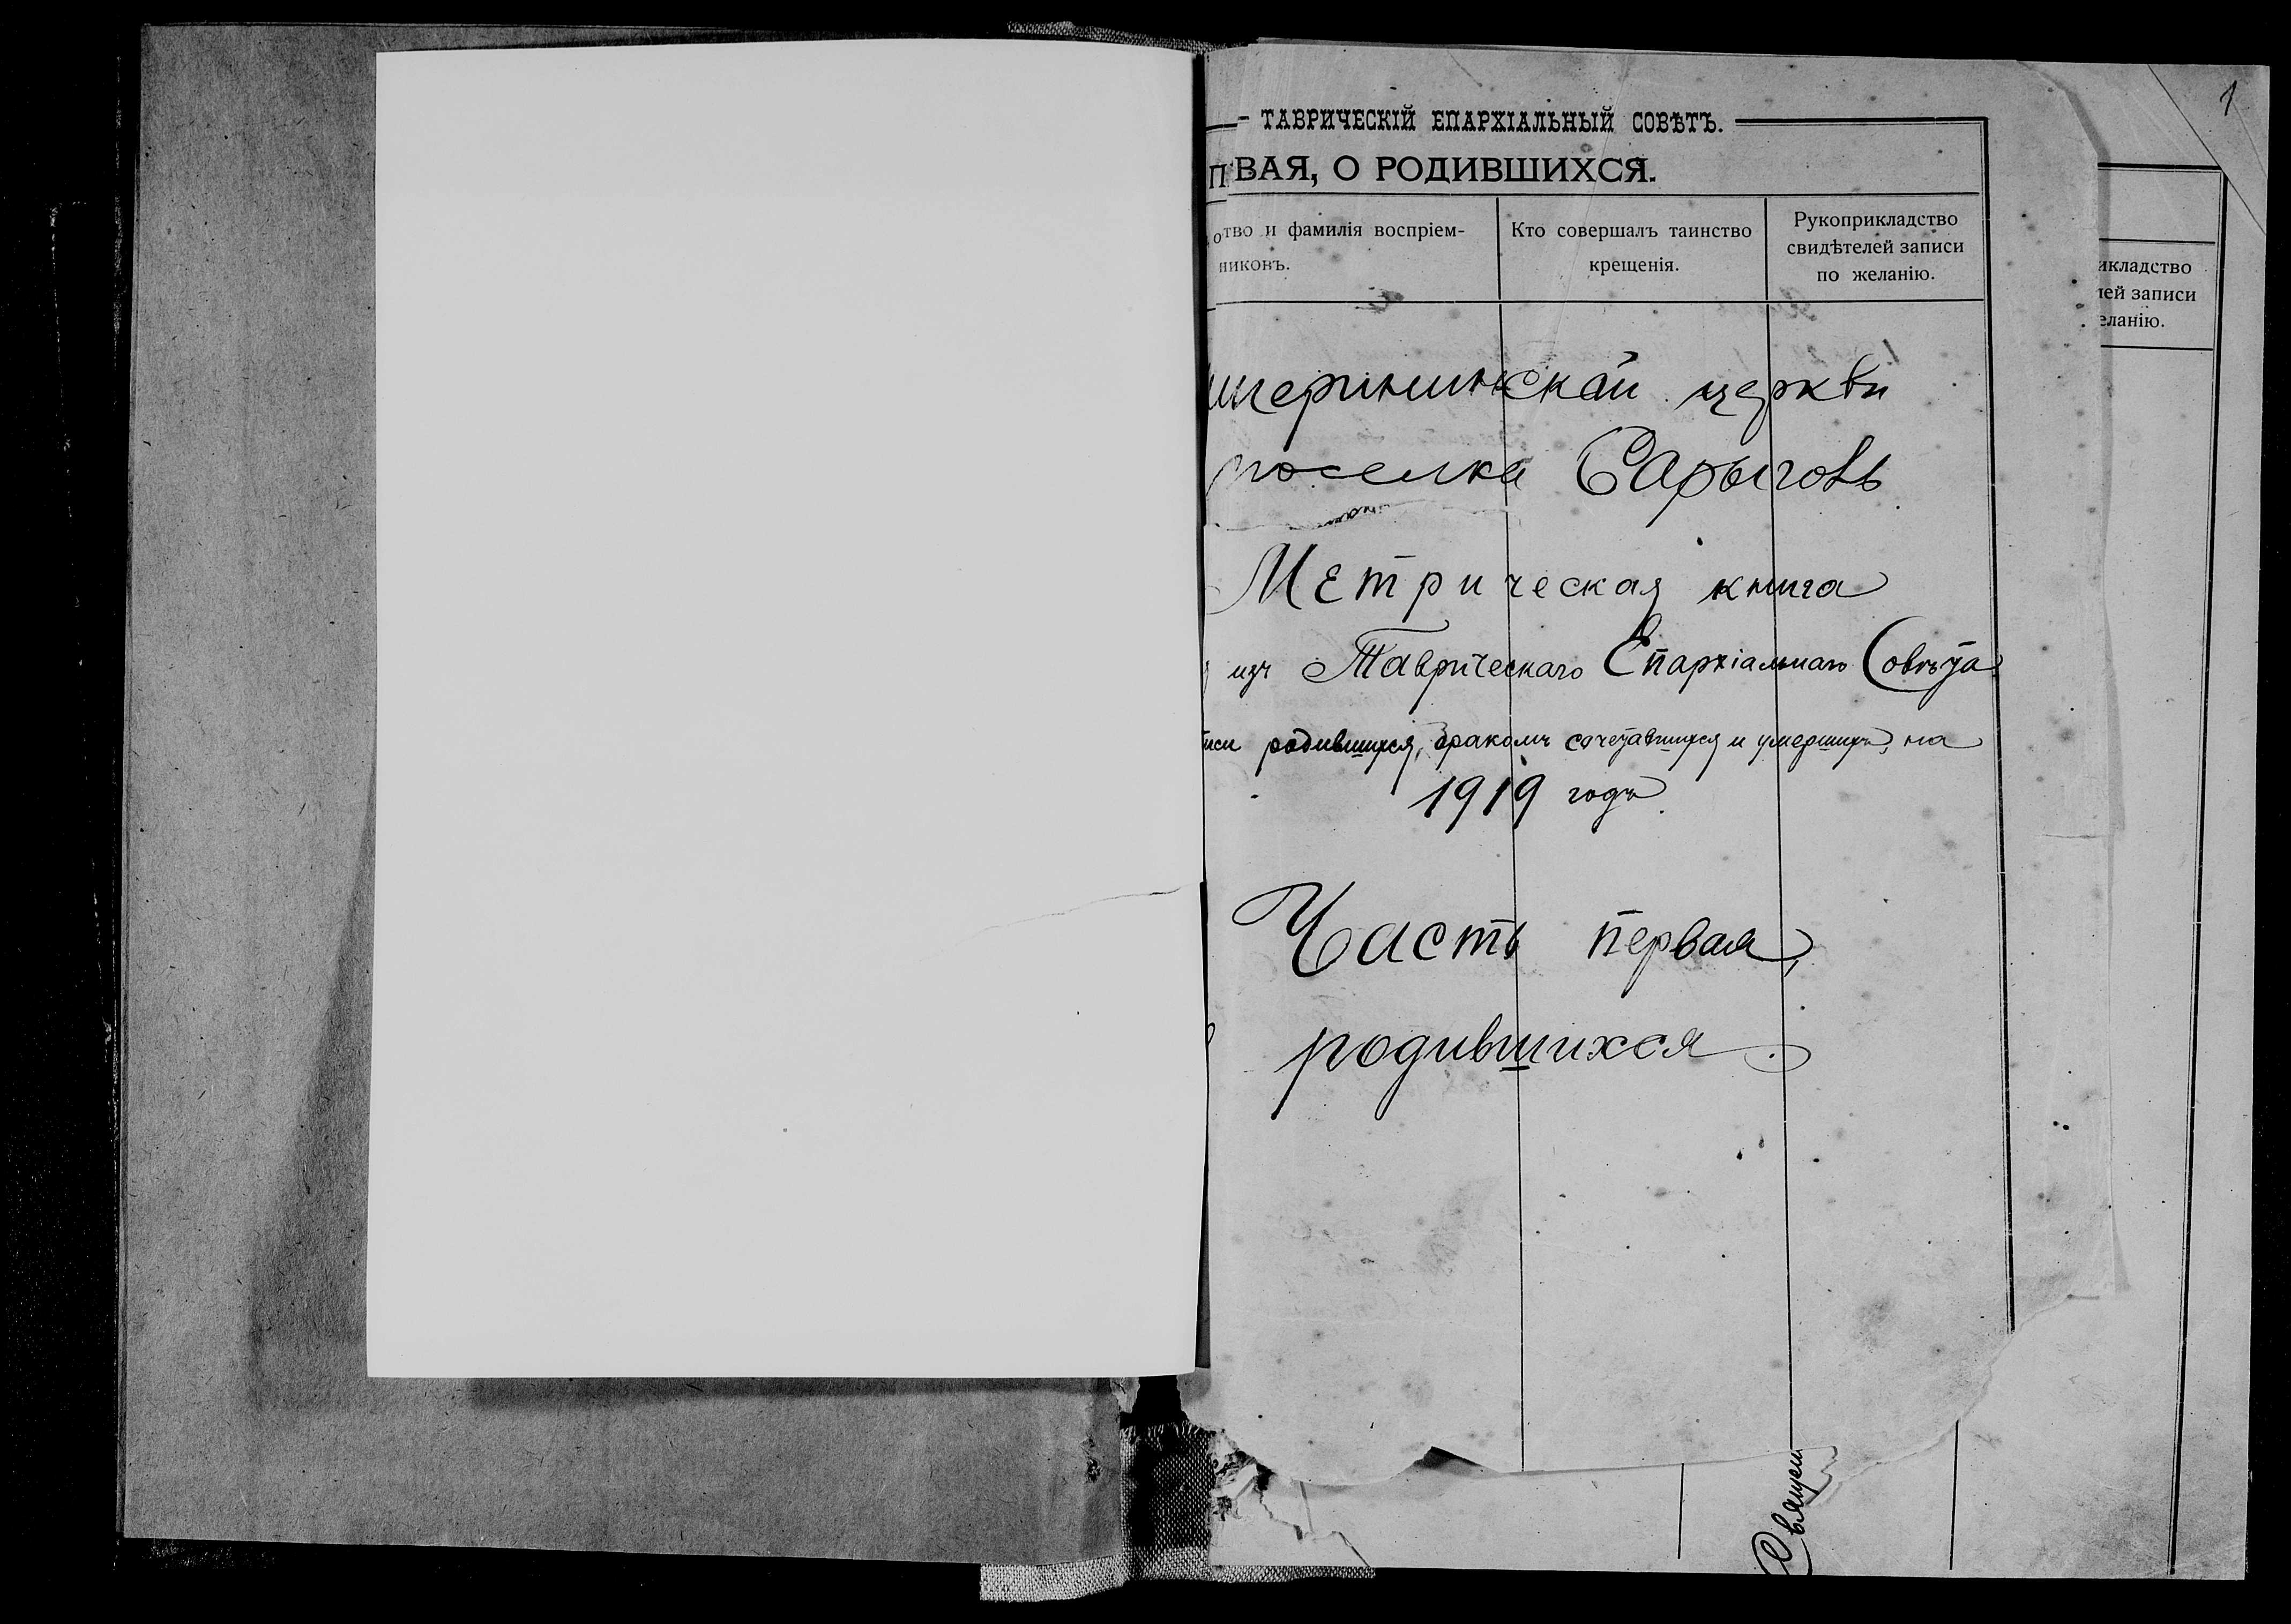 1
ТАВРИЧЕСКІЙ ЕПАРХІАЛЬНЫЙ СОВѢТЪ.
ВАЯ, О РОДИВШИХСЯ.
ство и фамилія воспріем-
никовъ.
Кто совершалъ таинство
крещенія.
Рукоприкладство
свидѣтелей записи
по желанію.
икладство
лей записи
еланію.
церкви
поселка Сарыголь
Метрическая книга
изъ Таврическаго Епархіальнаго Совѣта
писи родившихся, бракомъ сочетавшихся и умершихъ, на
1919 годъ.
Часть первая,
родившихся.
Священ